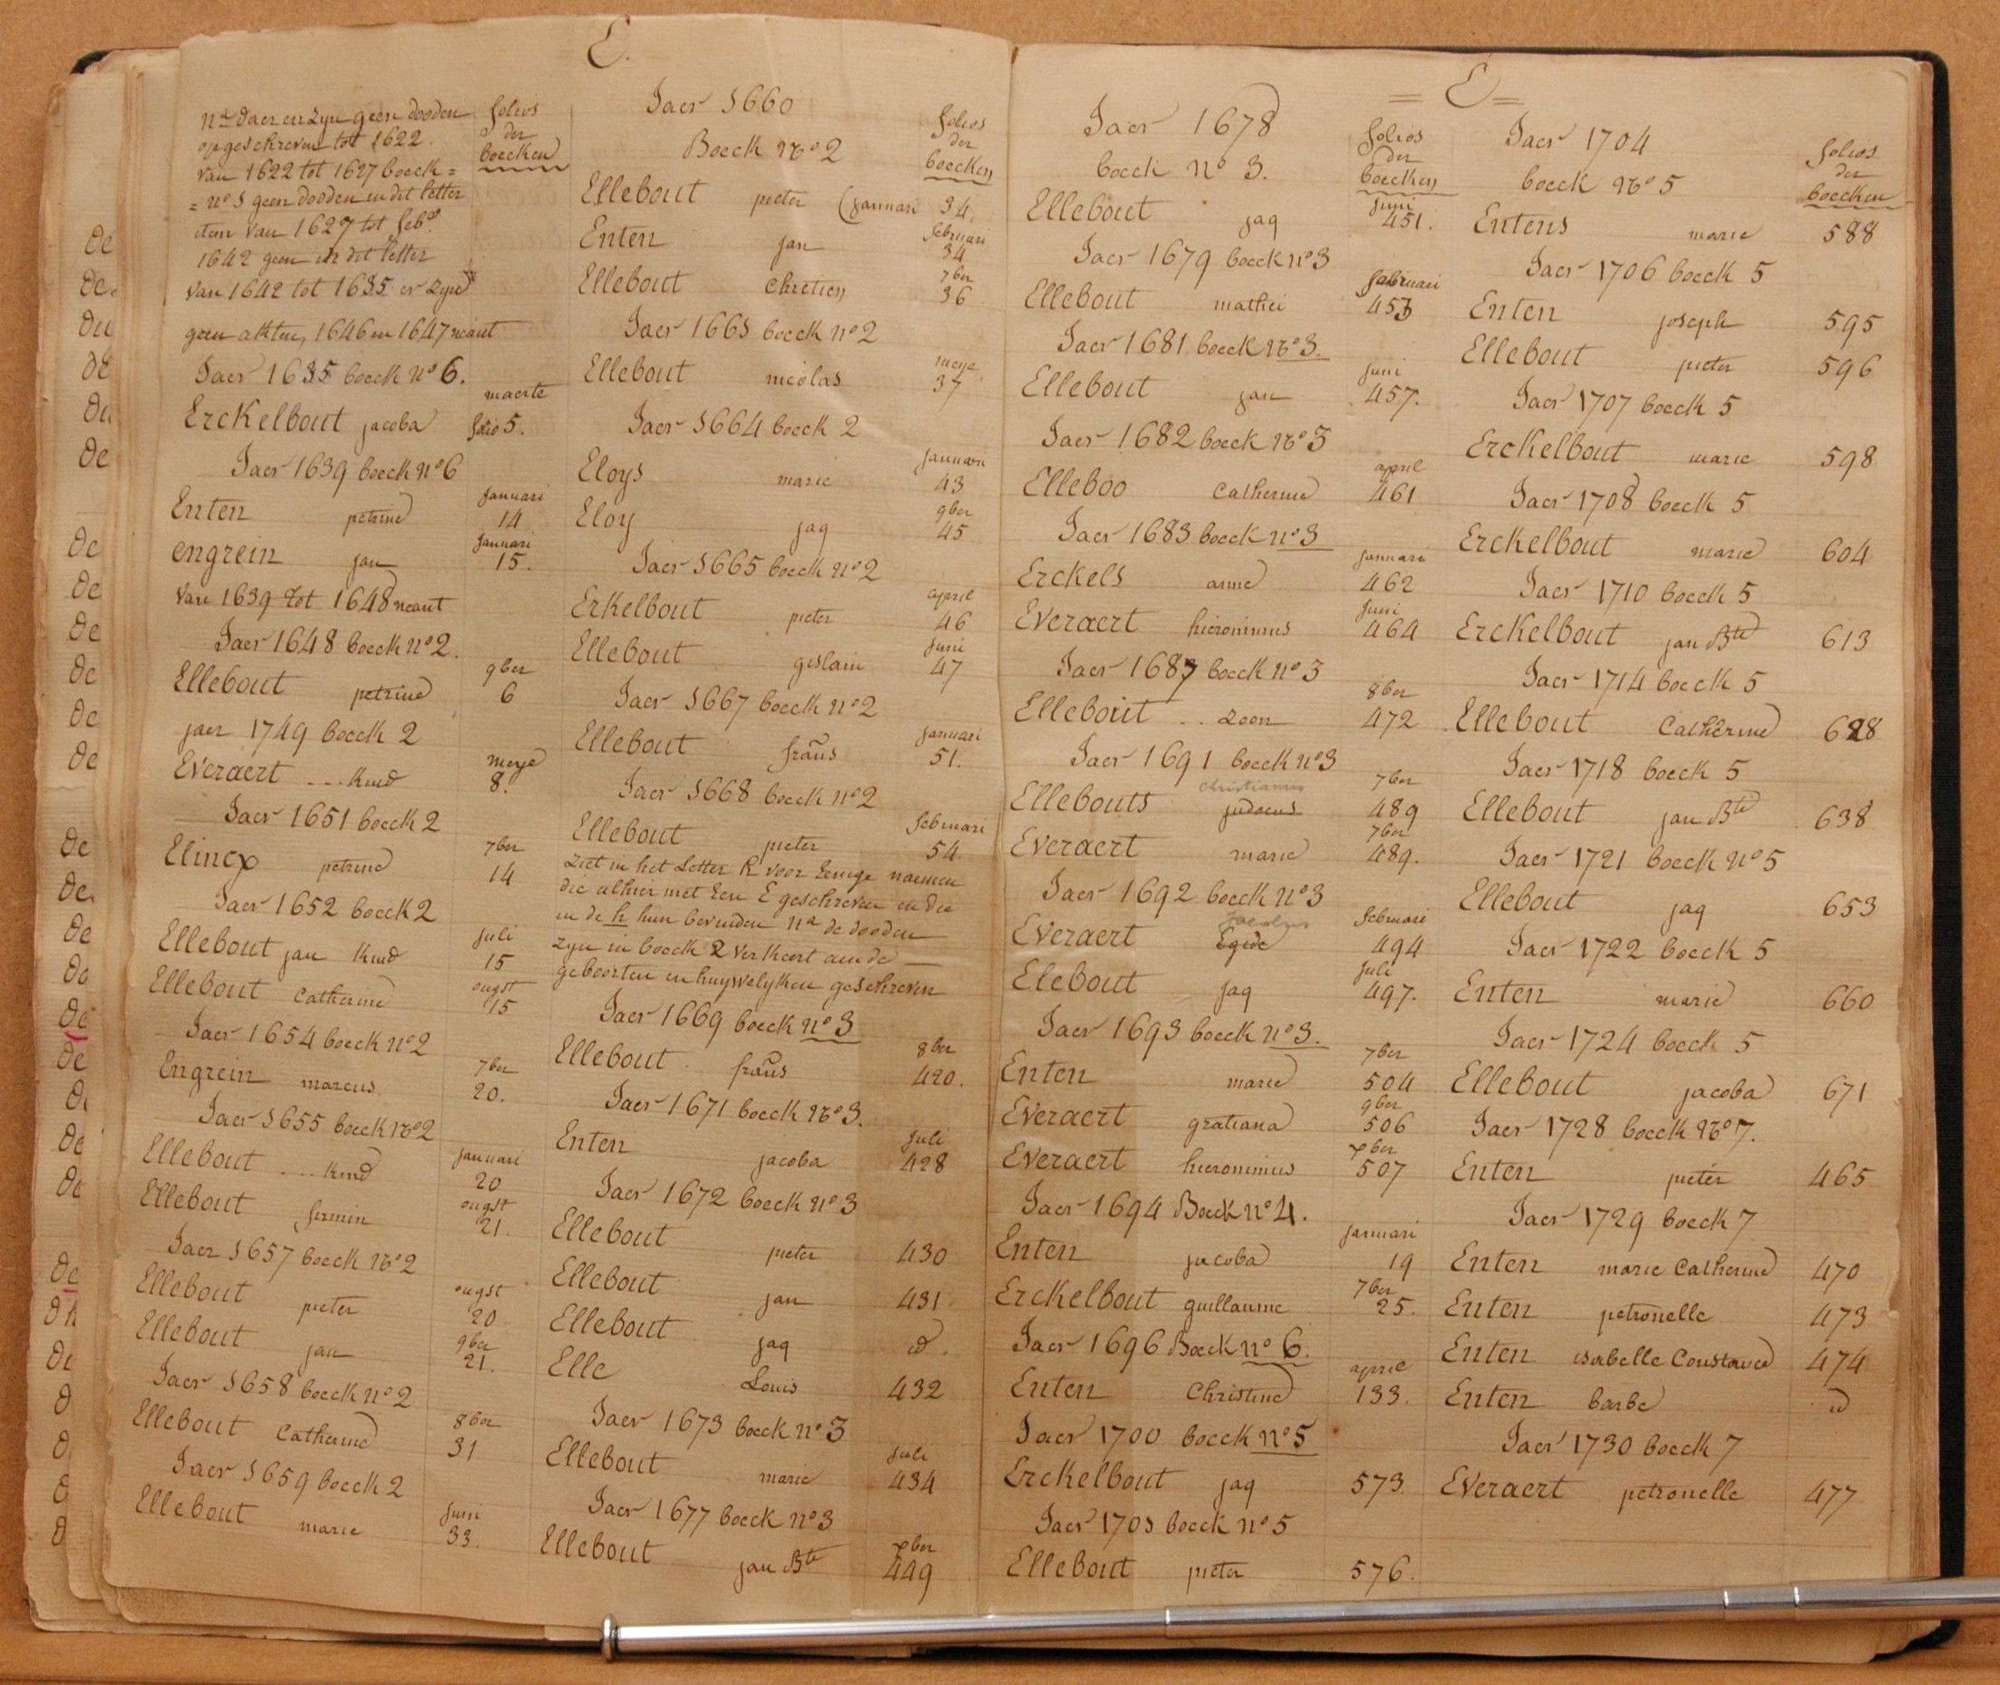 E.
nta daer en zyn geen dooden
opgeschreven tot 1622.
van 1622 tot 1627 boeck =
= n° 1 geen dooden in dit letter
item van 1627 tot feb.
1642 geen in dit letter
van 1642 tot 1635 er zyn
geen akten, 1646 en 1647 neant
folios
der
boecken
Jaer 1635 boeck n° 6.
maerte
Erckelbout jacoba folio 5.
Jaer 1639 boeck n° 6
januari
Enten petrine 14
januari
engrein jan 15.
van 1639 tot 1648 neant
Jaer 1648 boeck n° 2.
9ber
Ellebout petrine 6
jaer 1749 boeck 2
meye
Everaert ... kind 8.
Jaer 1651 boeck 2
7ber
Elincx petrine 14
Jaer 1652 boeck 2
juli
Ellebout jan kind 15
ougst
Ellebout catherine 15
Jaer 1654 boeck n° 2
7ber
Engrein marcus 20.
Jaer 1655 boeck n° 2
januari
Ellebout ... kind 20
ougst
Ellebout firmin 21.
Jaer 1657 boeck n° 2
ougst
Ellebout pieter 20
9ber
Ellebout jan 21.
Jaer 1658 boeck n° 2
8ber
Ellebout catherine 31
Jaer 1659 boeck 2
juni
Ellebout marie 33.
Jaer 1660
Boeck n° 2
folios
der
boecken
Ellebout pieter (januari 34.
februari
Enten jan 34
7ber
Ellebout chretien 36
Jaer 1663 boeck n° 2
meye
Ellebout nicolas 37
Jaer 1664 boeck 2
januari
Eloys marie 43
9ber
Eloy jaq 45
Jaer 1665 boeck n° 2
april
Erkelbout pieter 46
juni
Ellebout geslain 47
Jaer 1667 boeck n° 2
januari
Ellebout frans 51.
Jaer 1668 boeck n° 2
februari
Ellebout pieter 54
ziet in het Letter h voor eenige namen
die alhier met een E geschreven en die
in de h hun bevinden na de dooden
zyn in boeck 2 verkeert aen de
geboorten en huywelyken geschreven
Jaer 1669 boeck n° 3
8ber
Ellebout frans 420.
Jaer 1671 boeck n° 3.
juli
Enten jacoba 428
Jaer 1672 boeck n° 3
Ellebout pieter 430
Ellebout jan 431
Ellebout jaq id.
Elle Louis 432
Jaer 1673 boeck n° 3
juli
Ellebout marie 434
Jaer 1677 boeck n° 3
xber
Ellebout jan Bte 449
= E =
Jaer 1678
boeck n° 3.
folios
der
boecken
juni
Ellebout jaq 451.
Jaer 1679 boeck n° 3
februari
Ellebout mathei 453
Jaer 1681 boeck n° 3.
juni
Ellebout jan 457.
Jaer 1682 boeck n° 3
april
Elleboo catherine 461
Jaer 1683 boeck n° 3
januari
Erckels anne 462
juni
Everaert hieronimus 464
Jaer 1687 boeck n° 3
8ber
Ellebout .. zoon 472
Jaer 1691 boeck n° 3
christianus 7ber
Ellebouts judocus 489
7ber
Everaert marie 489.
Jaer 1692 boeck n° 3
jacobus februari
Everaert Egide 494
juli
Elebout jaq 497.
Jaer 1693 boeck n° 3.
7ber
Enten marie 504
9ber
Everaert gratiana 506
xber
Everaert hieronimus 507
Jaer 1694 Boeck n° 4.
januari
Enten jacoba 19
7ber
Erckelbout guillaume 25.
Jaer 1696 Boeck n° 6.
april
Enten Christine 133.
Jaer 1700 boeck n° 5
Erckelbout jaq 573.
Jaer 1703 boeck n° 5
Ellebout pieter 576.
Jaer 1704
boeck n° 5
folios
der
boecken
Entens marie 588
Jaer 1706 boeck 5
Enten joseph 595
Ellebout pieter 596
Jaer 1707 boeck 5
Erckelbout marie 598
Jaer 1708 boeck 5
Erckelbout marie 604
Jaer 1710 boeck 5
Erckelbout jan Bte 613
Jaer 1714 boeck 5
Ellebout Catherine 628
Jaer 1718 boeck 5
Ellebout jan Bte 638
Jaer 1721 boeck n° 5
Ellebout jaq 653
Jaer 1722 boeck 5
Enten marie 660
Jaer 1724 boeck 5
Ellebout jacoba 671
Jaer 1728 boeck n° 7.
Enten pieter 465
Jaer 1729 boeck 7
Enten marie Catherine 470
Enten petronelle 473
Enten isabelle Constance 474
Enten barbe id
Jaer 1730 boeck 7
Everaert petronelle 477